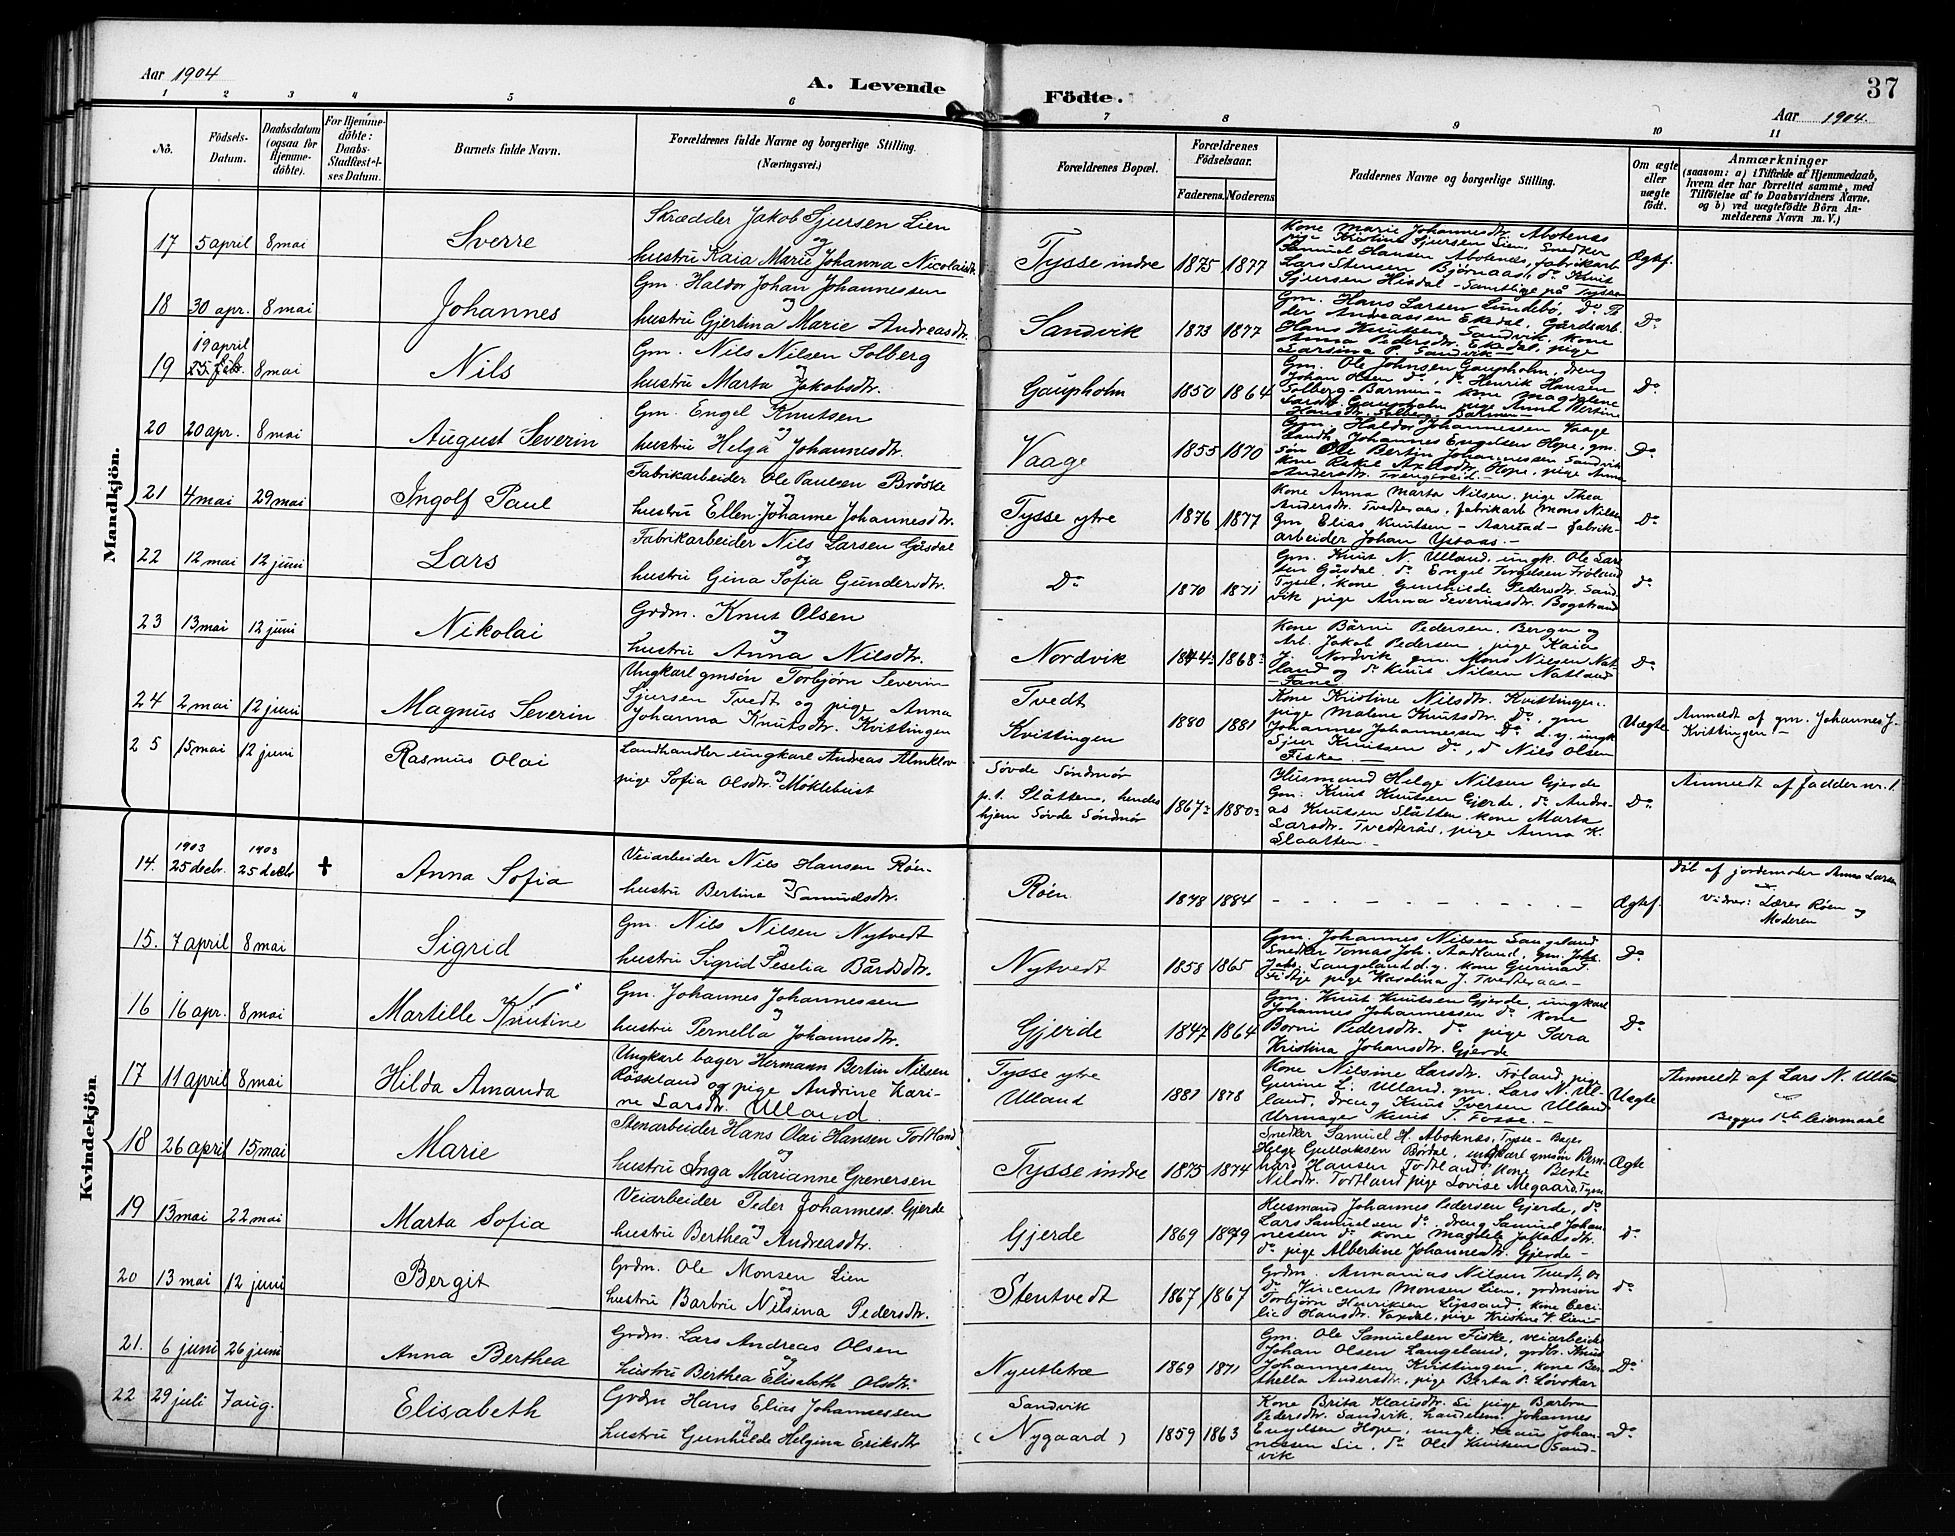 37
Aar 1904
A. Levende Födte.
Aar 1904.
1 2 3 4 5 6 7 8 9 10 11
No.
Födsels-Datum.
Daabsdatum (ogsaa for Hjemme-döbte).
For Hjemme-döbte: Daabs-Stadfæstel-ses Datum.
Barnets fulde Navn.
Forældrenes fulde Navne og borgerlige Stilling.
(Næringsvei.)
Forældrenes Bopæl.
Forældrenes Födselsaar.
Faderens. Moderens.
Faddernes Navne og borgerlige Stilling.
Om ægte eller uægte födt.
Anmærkninger
(saasom: a) i Tilfælde af Hjemmedaab,
hvem der har forrettet samme, med
Tilföielse af to Daabsvidners Navne.
og b) ved uægtefödte Börn An-
melderens Navn m. V.)
Mandkjön.
17 5 april 8 mai Sverre
Skrædder Jakob Sjursen Lien
og
hustru Kaia Marie Johanna Nicolaidtr.
Tysse indre 1875 1877
Kone Marie Johannesdtr. Aboteness
pige Kristine Sjursen Lien, Snedker
Samuel Hansen Abotenes, fabrikarb.
Lars Stensen Bjørnaas, do Knut
Sjursen Hisdal - Samtlige på Tysse
Ægtef.
18 30 apr. 8 mai Johannes
Gm. Haldor Johan Johannessen
og
hustru Gjertina Marie Andreasdtr.
Sandvik 1873 1877
Gm. Hans Larsen Lundebö, Do P
der Andreassen Ekedal, Gårdsarb.
Hans Knutsen Sandvik. kone
Anna Pedersdtr. Ekedal, pige
Larsina P. Sandvik -
Do
19 19 april 25 feb. 8 mai Nils
Gm. Nils Nilsen Solberg
og
hustru Marta Jakobsdtr.
Gaupholm 1850 1864
Gm. Ole Johnsen Gaupholm, dreng
Johan Olsen do, do Henrik Hansen
Solberg - Barmen, kone Magdelene
Larsdtr. Gaupholm, pige Anna Bertine
Hansdtr. Solberg, Barmen
Do
20 20 apr. 8 mai August Severin
Gm. Engel Knutsen
og
hustru Helga Johannesdtr.
Vaage 1855 1870
Gm. Haldor Johannessen Vaage
Landh. Johannes Engelsen Hope, gm.
Søn Ole Bertin Johannessen Sandvik
kone Rakel Axelsdtr. Hope, pige Anna
Andersdtr. Trengereid. -
Do
21 4 mai 29 mai Ingolf Paul
Fabrikarbeider Ole Paulsen Bröske
og
hustru Ellen Johanne Johannesdtr.
Tysse ytre 1876 1877
Kone Anna Marta Nilsen, pige Thea
Andersdtr. Tvedteraas, fabrikarb. Mons Nilsen
Gm Elias Knutsen - Aarstad - fabrik-
arbeider Johan Ystaas. -
Do
22 12 mai 12 juni Lars
Fabrikarbeider Nils Larsen Gåsdal
og
hustru Gina Sofia Gundersdtr.
Do 1870 1871
Gm. Knut N. Ulland, ungk. Ole Lar-
sen Gåsdal, do Engel Engelsen Fröland
Tysse, kone Gunhilde Pedersdtr. Sand-
vik pige Anna Severinsdtr. Bogstrand
do
23 13 mai 12 juni Nikolai
Grdm. Knut Olsen
og
hustru Anna Nilsdtr.
Nordvik 1844 1868
Kone Börni Pedersen, Bergen og
Arb. Jakob Pedersen, pige Kaia
J. Nordvik, gm. Mons Nielsen Nat-
land og do Knut Nilsen Natland
- Fane -
Do
24 2 mai 12 juni Magnus Severin
Ungkarl gmsön Torbjörn Severin
Sjursen Tvedt og pige Anna
Johanna Knutsdtr. Kvittingen
Tvedt
Kvittingen 1880 1881
Kone Kristine Nilsdtr. Kvittingen,
pige Malene Knutsdtr. Do, gm
Johannes Johannessen Do d.y. ungk
Sjur Knutsen do, d Nils Olsen
Fiske. -
Uægte
Anmeldt af gm. Johannes J.
Kvittingen -
25 15 mai 12 juni Rasmus Olai
Landhandler ungkarl Andreas Almklov
og
pige Sofia Olsdtr. Möklebust
Søvde Söndmör
p.t. Slåtten, hendes
hjem Søvde Söndmör 1867 1880
Husmand Helge Nilsen Gjerde
Gm. Knut Knutsen Gjerde, do Andre-
as Knutsen Slåtten, kone Marta
Larsdtr. Tvedterås, pige Anna K.
Slaatten. -
Do
Anmeldt af fadder nr. 1.
Kvindekjön
14. 1903 25 decbr. 1903 25 decbr + Anna Sofia
Veiarbeider Nils Hansen Røen
og
hustru Bertine Samuelsdtr.
Røen 1878 1884
- - - - - - - - -
Ægtef.
Döb. af jordemoder Anna Larsen
Vidner: Lærer Röen og
Moderen
15. 7 april 8 mai Sigrid
Gm. Nils Nilsen Nytvedt
og
hustru Sigrid Seselia Bårdsdtr.
Nytvedt 1858 1865
Gm. Johannes Nilsen Langeland
Snedker Tomas Joh. Aadland, gm. Johs.
Johs. Langeland d.y. kone Gurina
Fidtje pige Karolina J. Tvedteraas -
Do
16 16 apr. 8 mai Martille Knutine
Gm. Johannes Johannessen
og
hustru Pernella Johannesdtr.
Gjerde 1847 1864
Gm. Knut Knutsen Gjerde, ungkarl
Johannes Johannessen do kone
Borni Pedersdtr. do pige Sara
Kristina Johansdtr. Gjerde
Do
17 11 april 8 mai Hilda Amanda
Ungkarl bager Hermann Bertin Nilsen
Röskland og pige Andrine Kari-
ne Larsdtr. Ulland.
Tysse ytre
Ulland 1881 1878
Kone Nilsine Larsdtr. Fröland, pige
Gurine L. Ulland, gm. Lars N. Ul-
land, dreng Knut Iversen Ulland
Urmager Knut T. Fosse. -
Uægte
Anmeldt af Lars N. Ulland
Begges 1ste leiermaal
18 26 april 15 mai Marie
Stenarbeider Hans Olai Hansen Todtland
og
hustru Inga Marianne Grenersen
Tysse indre 1875 1874
Snedker Samuel H. Abotnes, Tysse - Bager
Helge Gullaksen Børdal, ungkarl gmsön Bern-
hard Hansen Todtland, kone Berte
Nilsdtr. Todtland pige Lovise Megaard, Tysse
Ægte
19 13 mai 22 mai Marta Sofia
Veiarbeider Peder Johanness. Gjerde
og
hustru Berthea Andreasdtr.
Gjerde 1869 1879
Husmand Johannes Pedersen Gjerde, do
Lars Samuelsen do, dreng Samuel Johan-
nessen do kone Magdela Jakobsdtr.
do pige Albertine Johannesdtr. Gjerde -
do
20 13 mai 12 juni Bergit
Grdm. Ole Monsen Lien
og
hustru Barbru Nilsina Pedersdtr.
Stentvedt 1867 1867
Grdm. Annanias Nilsen Tvedt, og
do Vincents Monsen Lien, grdmsön
Torbjörn Henriksen Lyssand, kone Ceci-
lie Hansdtr. Vaxdal, pige Kristine V. Lien -
do
21. 6 juni 26 juni Anna Berthea
Grdm. Lars Andreas Olsen
og
hustru Berthea Elisabeth Olsdtr.
Nyutletræ 1869 1871
Gm. Ole Samuelsen Fiske, veiarbeider
Johan Olsen Langeland, grdbr. Knut
Johannessen Kvittingen, kone Ber-
thella Andersdtr., pige Berta P. Løvokar
Do
22 29 juli 7 aug. Elisabeth
Grdm Hans Elias Johannessen
og
hustru Gunhilde Helgina Eriksdtr
Sandvik
(Nygaard) 1859 1863
Kone Brita Klausdtr. Si pige Barbro
Pedersdtr. Sandvik, handelsm. Johannes
Engelsen Hope, ungk. Johan-
nessen Sie, do Ole Knutsen Sand-
vik
Do